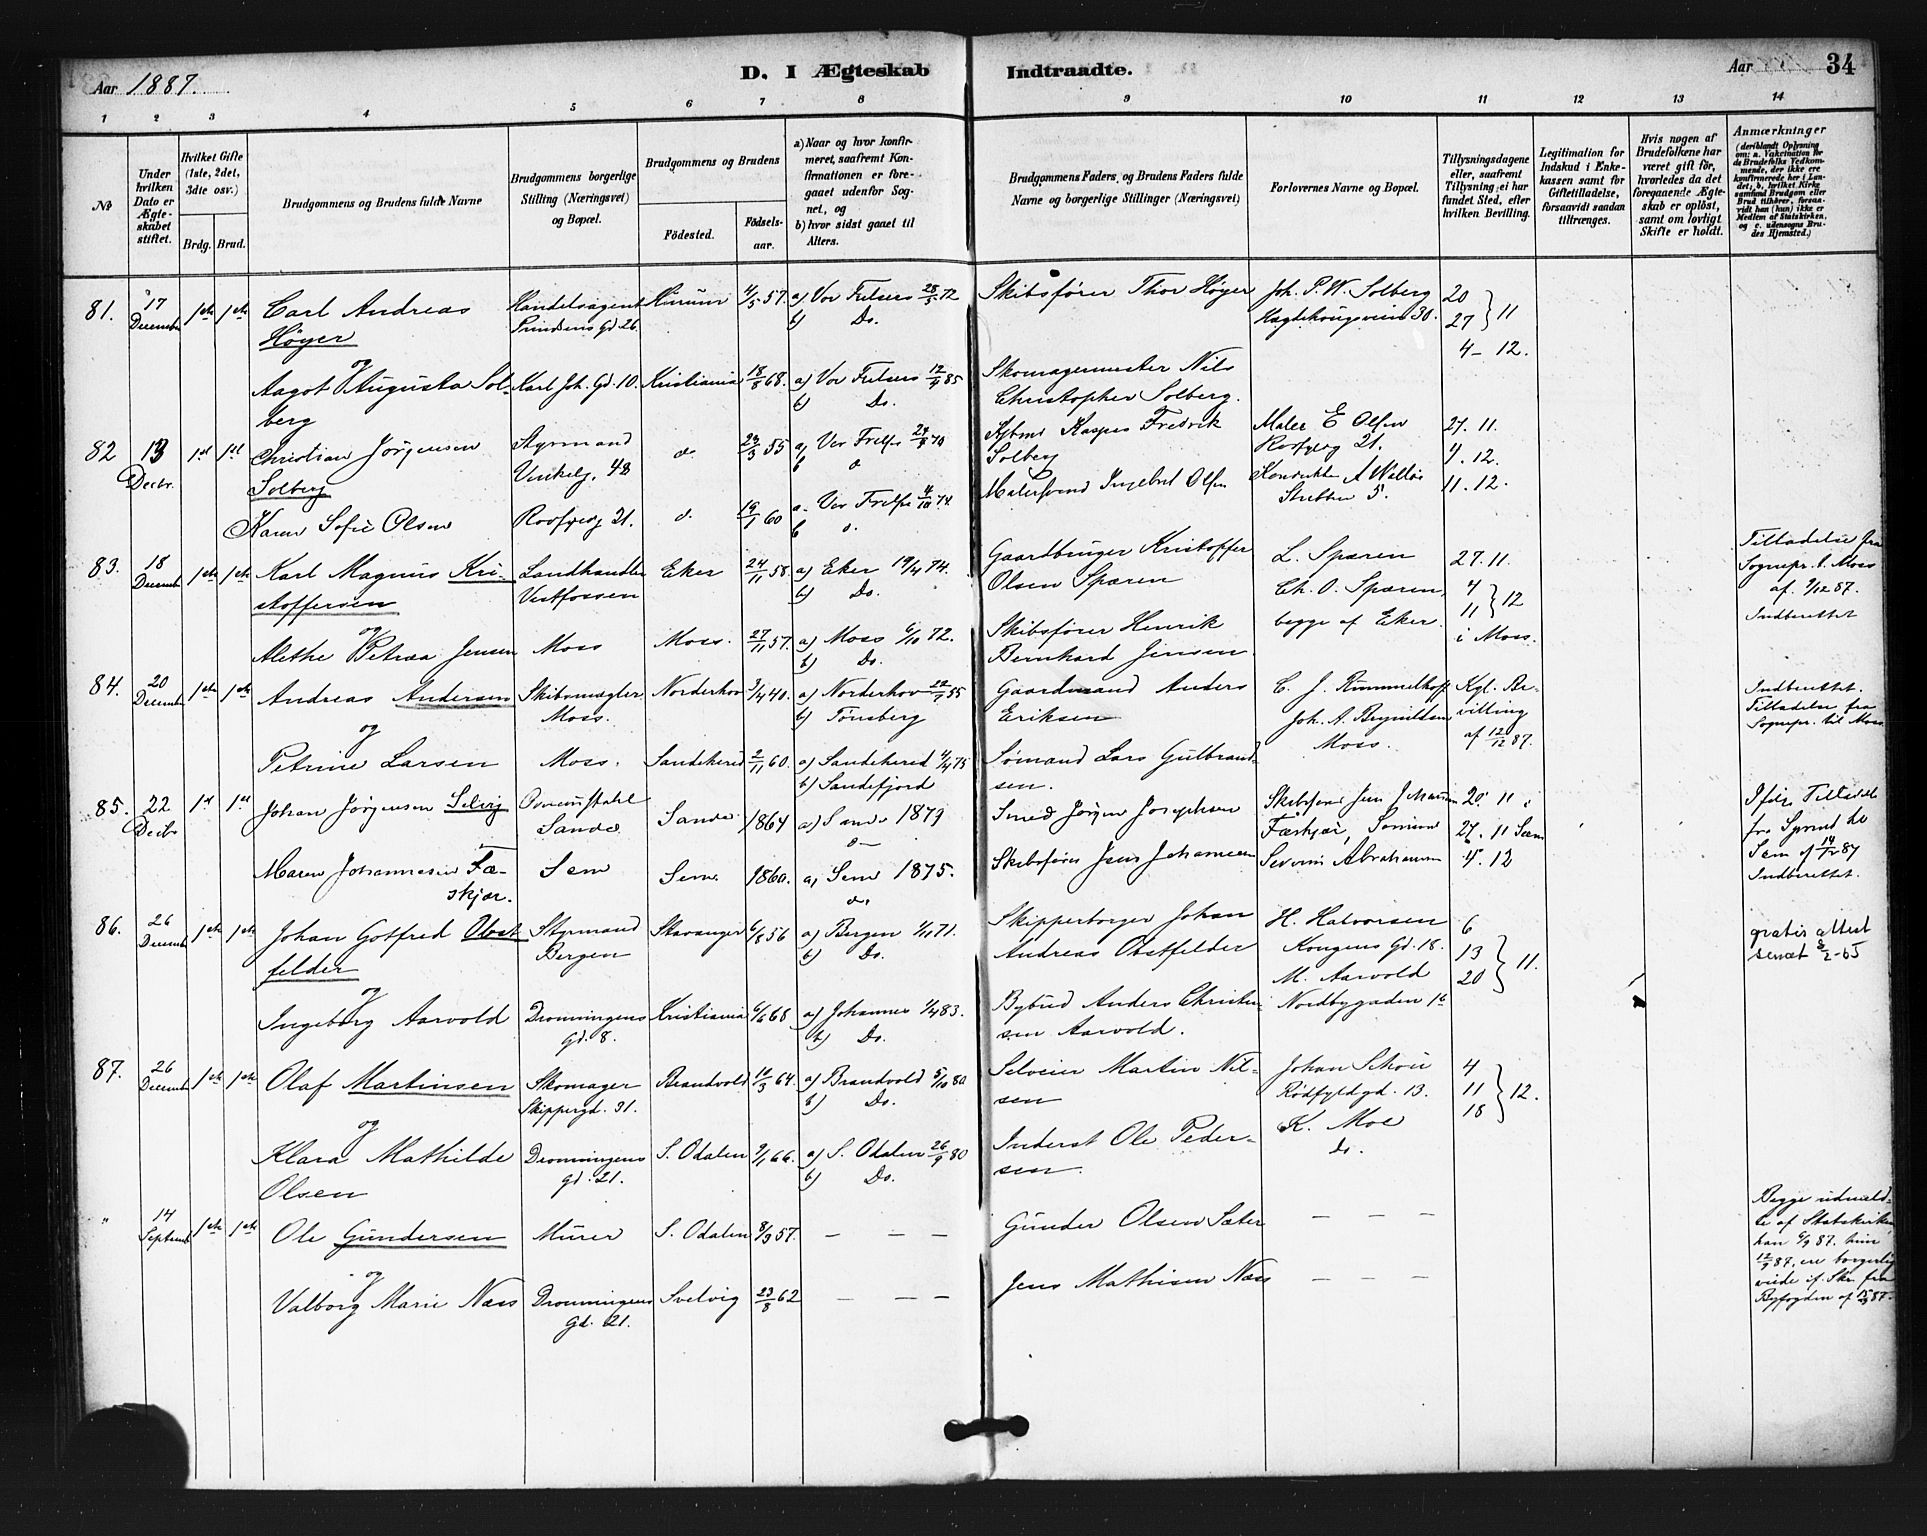 Aar 1887.
D. I Ægteskab Indtraadte.
Aar
34
1 2 3 4 5 6 7 8 9 10 11 12 13 14
No
Under hvilken Dato er Ægteskabet stiftet.
Hvilket Gifte (1ste, 2det, 3dte osv.)
Brdg. Brud.
Brudgommens og Brudens fulde Navne
Brudgommens borgerlige Stilling (Næringsvei) og Bopæl.
Brudgommens og Brudens
Fødested.
Fødsels-aar.
a) Naar og hvor konfirmeret, saafremt Konfirmationen er foregaaet udenfor Sognet, og
b) hvor sidst gaaet til Alters.
Brudgommens Faders og Brudens Faders fulde Navne og borgerlige Stillinger (Næringsvei)
Forlovernes Navne og Bopæl.
Tillysningsdagene eller, saafremt Tillysning ei har fundet Sted, efter hvilken Bevilling.
Legitimation for Indskud i Enkekassen samt for Giftetilladelse, forsaavidt saadan tiltrænges.
Hvis nogen af Brudefolkene har været gift før, hvorledes da det foregaaende Ægteskab er opløst, samt om lovligt Skifte er holdt.
Anmærkninger
(deriblandt Oplysning om: a. Vakcination for de Brudefolks Vedkommende, der ikke ere konfirmerede her i Landet; b. hvilket Kirkesamfund Brudgom eller Brud tilhører, forsaavidt han (hun) ikke er Medlem af Statskirken, og c. udensogns Brudes Hjemsted.)
81. 17 Decemb 1ste 1ste Carl Andreas Höyer Handelsagent Prindsens Gd 26. Hurum 4/5 57. a) Vor Frelsers 28/5 72 b) Do. Skibsfører Thor Höyer Joh. P. W. Solberg Hægdehaugsveien 30. 20 27 } 11 4 - 12.
og
Aagot Augusta Solberg Karl Joh. Gd. 10. Kristiania 18/8 68. a) Vor Frelsers 12/4 85 b) Do. Skomagermester Nils Christopher Solberg.
82 13 Decbr. 1st 1st Christian Jørgensen Solberg Styrmand 48 d. 29/3 55 a) Vor Frelse b d Kasper Fredrik Solberg Maler E Olsen 21. 27. 11. 4. 12. 11. 12.
Karen Sofie Olsen 21. d. 19/1 60 a. Vor Frelse 4/10 74 b d. Malersvend Ingebret Olsen A 5.
83. 18 Decemb 1ste 1ste Karl Magnus Kristoffersen Landhandler Vestfossen Eker 24/11 58. a) Eker 19/4 74. b) Do. Gaardbruger Kristoffer Olsen Sparen L. Sparen Ch. O. Sparen, begge af Eker. 27. 11. 4 11 } 12 i Moss. Tilladelse fra Sognepr. t. Moss af 7/12 87. Indberettet
og
Alethe Petrea Jensen Moss Moss. 27/11 57. a) Moss 6/10 72. b) Do. Skibsfører Henrik Bernhard Jensen.
84. 20 Decemb 1ste 1ste Andreas Andersen Skibsmægler Moss. Norderhov 3/4 40. a) Norderhov b) Tønsberg Gaardmand Anders Eriksen C. J. Rummelhoff Joh. A. Brynildsen Moss. Kgl. Bevilling af 12/12 87. Indberettet. Tilladelse fra Sognepr. til Moss
og
Petrine Larsen Moss. Sandeherred 2/11 60. a) Sandeherred 4/4 75 b) Sandefjord Sømand Lars Gulbrandsen.
85. 22 Decbr 1st 1st Johan Jørgensen Selvig Sande Sande 1864 a) Sande 1879 d Smed Jørgen Josephsen Skibsfører Jens Johansen Færkjær, 20. 11. 27. 11 Sem 4. 12 Ifölge Tilladelse fra Sprst til Sem af 14/12 87 Indberettet.
Maren Johannesen Færskjær. Sem Sem 1860. a, Sem 1875. d. Skibsfører Jens Johannesen Severin Abrahamsen
86. 26 Decemb 1ste 1ste Johan Gotfred Obstfelder Styrmand Bergen Stavanger 6/8 56 a) Bergen 71. b) Do. Skipperborger Johan Andreas Obstfelder H. Halvorsen Kongens Gd. 18. 6 13 20 } 11. gratis attest sendt 8/2-65
og
Ingeborg Aarvold Dronningens Gd. 8. Kristiania 6/6 68 a) Johannes 1/4 83. b) Do. Bybud Anders Christensen Aarvold. M. Aarvold Nordbygaden 16
87. 26 Decemb 1ste 1ste Olaf Martinsen Skomager Skippergd. 31. Brandvold 10/3 64. a) Brandvold 5/10 80 b) Do. Selveier Martin Nilsen Johan Schou Rødfyldgd. 13. 4 11 18 } 12.
og
Klara Mathilde Olsen Dronningens gd. 21. S. Odalen 9/1 66. a) S. Odalen 26/9 80 b) Do. Inderst Ole Pedersen. K. Moe do.
" 14 Septemb 1ste 1ste Ole Gundersen Murer S. Odalen 8/9 57. — — — Gunder Olsen Sæter — — — Begge udmeldte af Statskirken, han 6/9 87. hun 12/9 87, ere borgerlig viede if. Skr. fra Byfogden af 15/9 87.
og
Valborg Marie Næss Dronningens Gd. 21. Svelvig 23/8 62 — — — Jens Mathisen Næss — — —